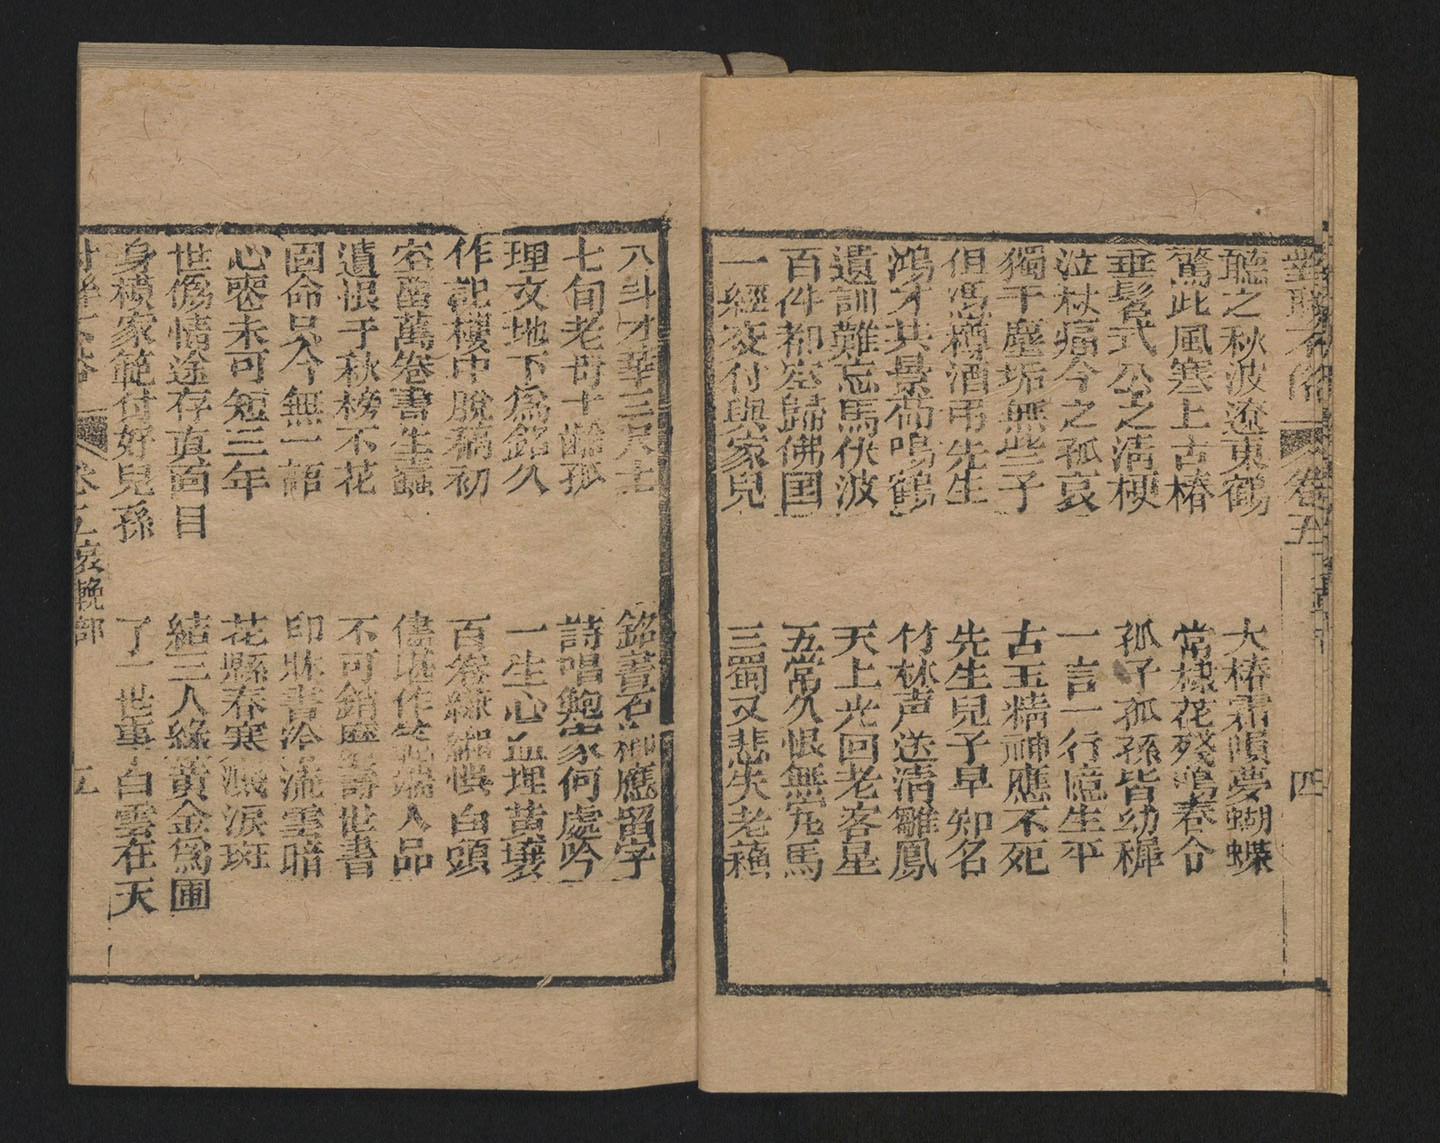 卷五 四
聽之秋波遼東鶴 大椿霜隕夢蝴蝶
驚此風寒上古椿 常棣花殘鳴春令
垂髫式公之清梗 孤子孤孫皆幼穉
泣杖痛今之孤哀 一言一行憶生平
獨干塵垢無些子 古玉精神應不死
但憑樽酒弔先生 先生兒子早知名
鴻才共景荀鳴鶴 竹林声送清雛鳳
遺訓難忘馬伏波 天上光回老客星
百件都空歸佛国 五常久恨無完馬
一經夜付與家兒 三蜀又悲失老蘓
八斗才華三尺土 銘書石槨應留字
七旬老母十齡孤 詩唱鮑家何處吟
理文地下爲銘久 一生心血埋黄壤
作記樓中脫稿初 百卷縹緗慎白頭
空鑿萬卷書生蠧 儘堪作筆端人品
遺恨于秋榜不花 不可銷歷壽世書
固命呂今無一語 印牀書冷流雲暗
心喪未可短三年 花縣春寒濺淚斑
世僞情途存真面目 結三人緣黄金爲圃
身積家範付好兒孫 了一世事白雲在天
哀輓部 五